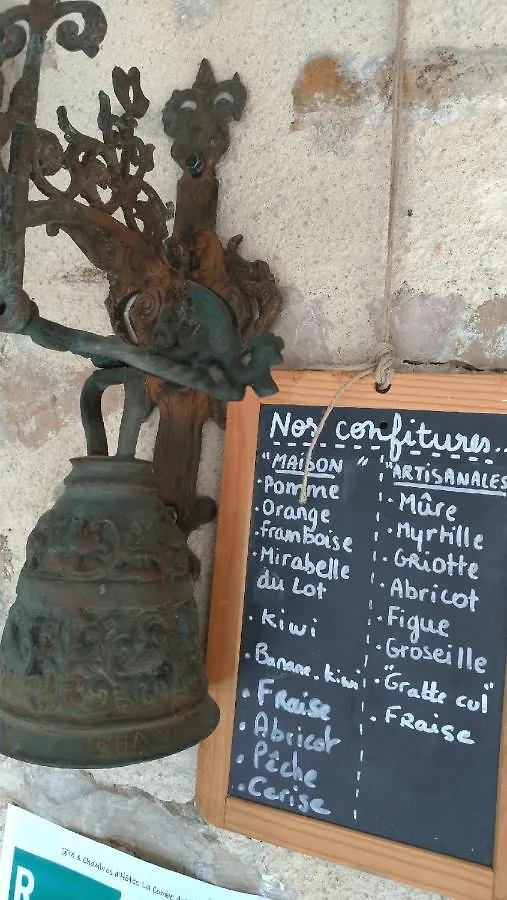 Nos confitures...
"MAISON"
• Pomme
• Orange
• framboise
• Mirabelle
du Lot
• Kiwi
• Banane. kiwi
• Fraise
• Abricot
• Pêche
• Cerise
"ARTISANALES
• Mûre
• Myrtille
• GRiotte
• Abricot
• Figue
• Groseille
• "Gratte cul"
• Fraise
Gîte & Chambres d'Hôtes La Combe
R